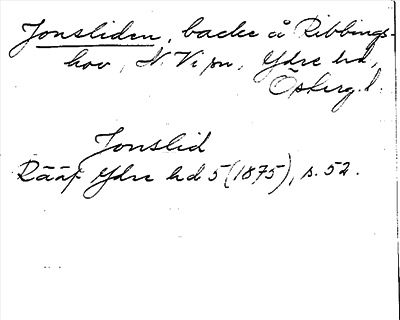 Jonsliden, backe å Ribbings-
hov, N. Vi sn, Ydre hd,
Östergl.
Jonslid
Rääf Ydre hd 5 (1875), s. 52.